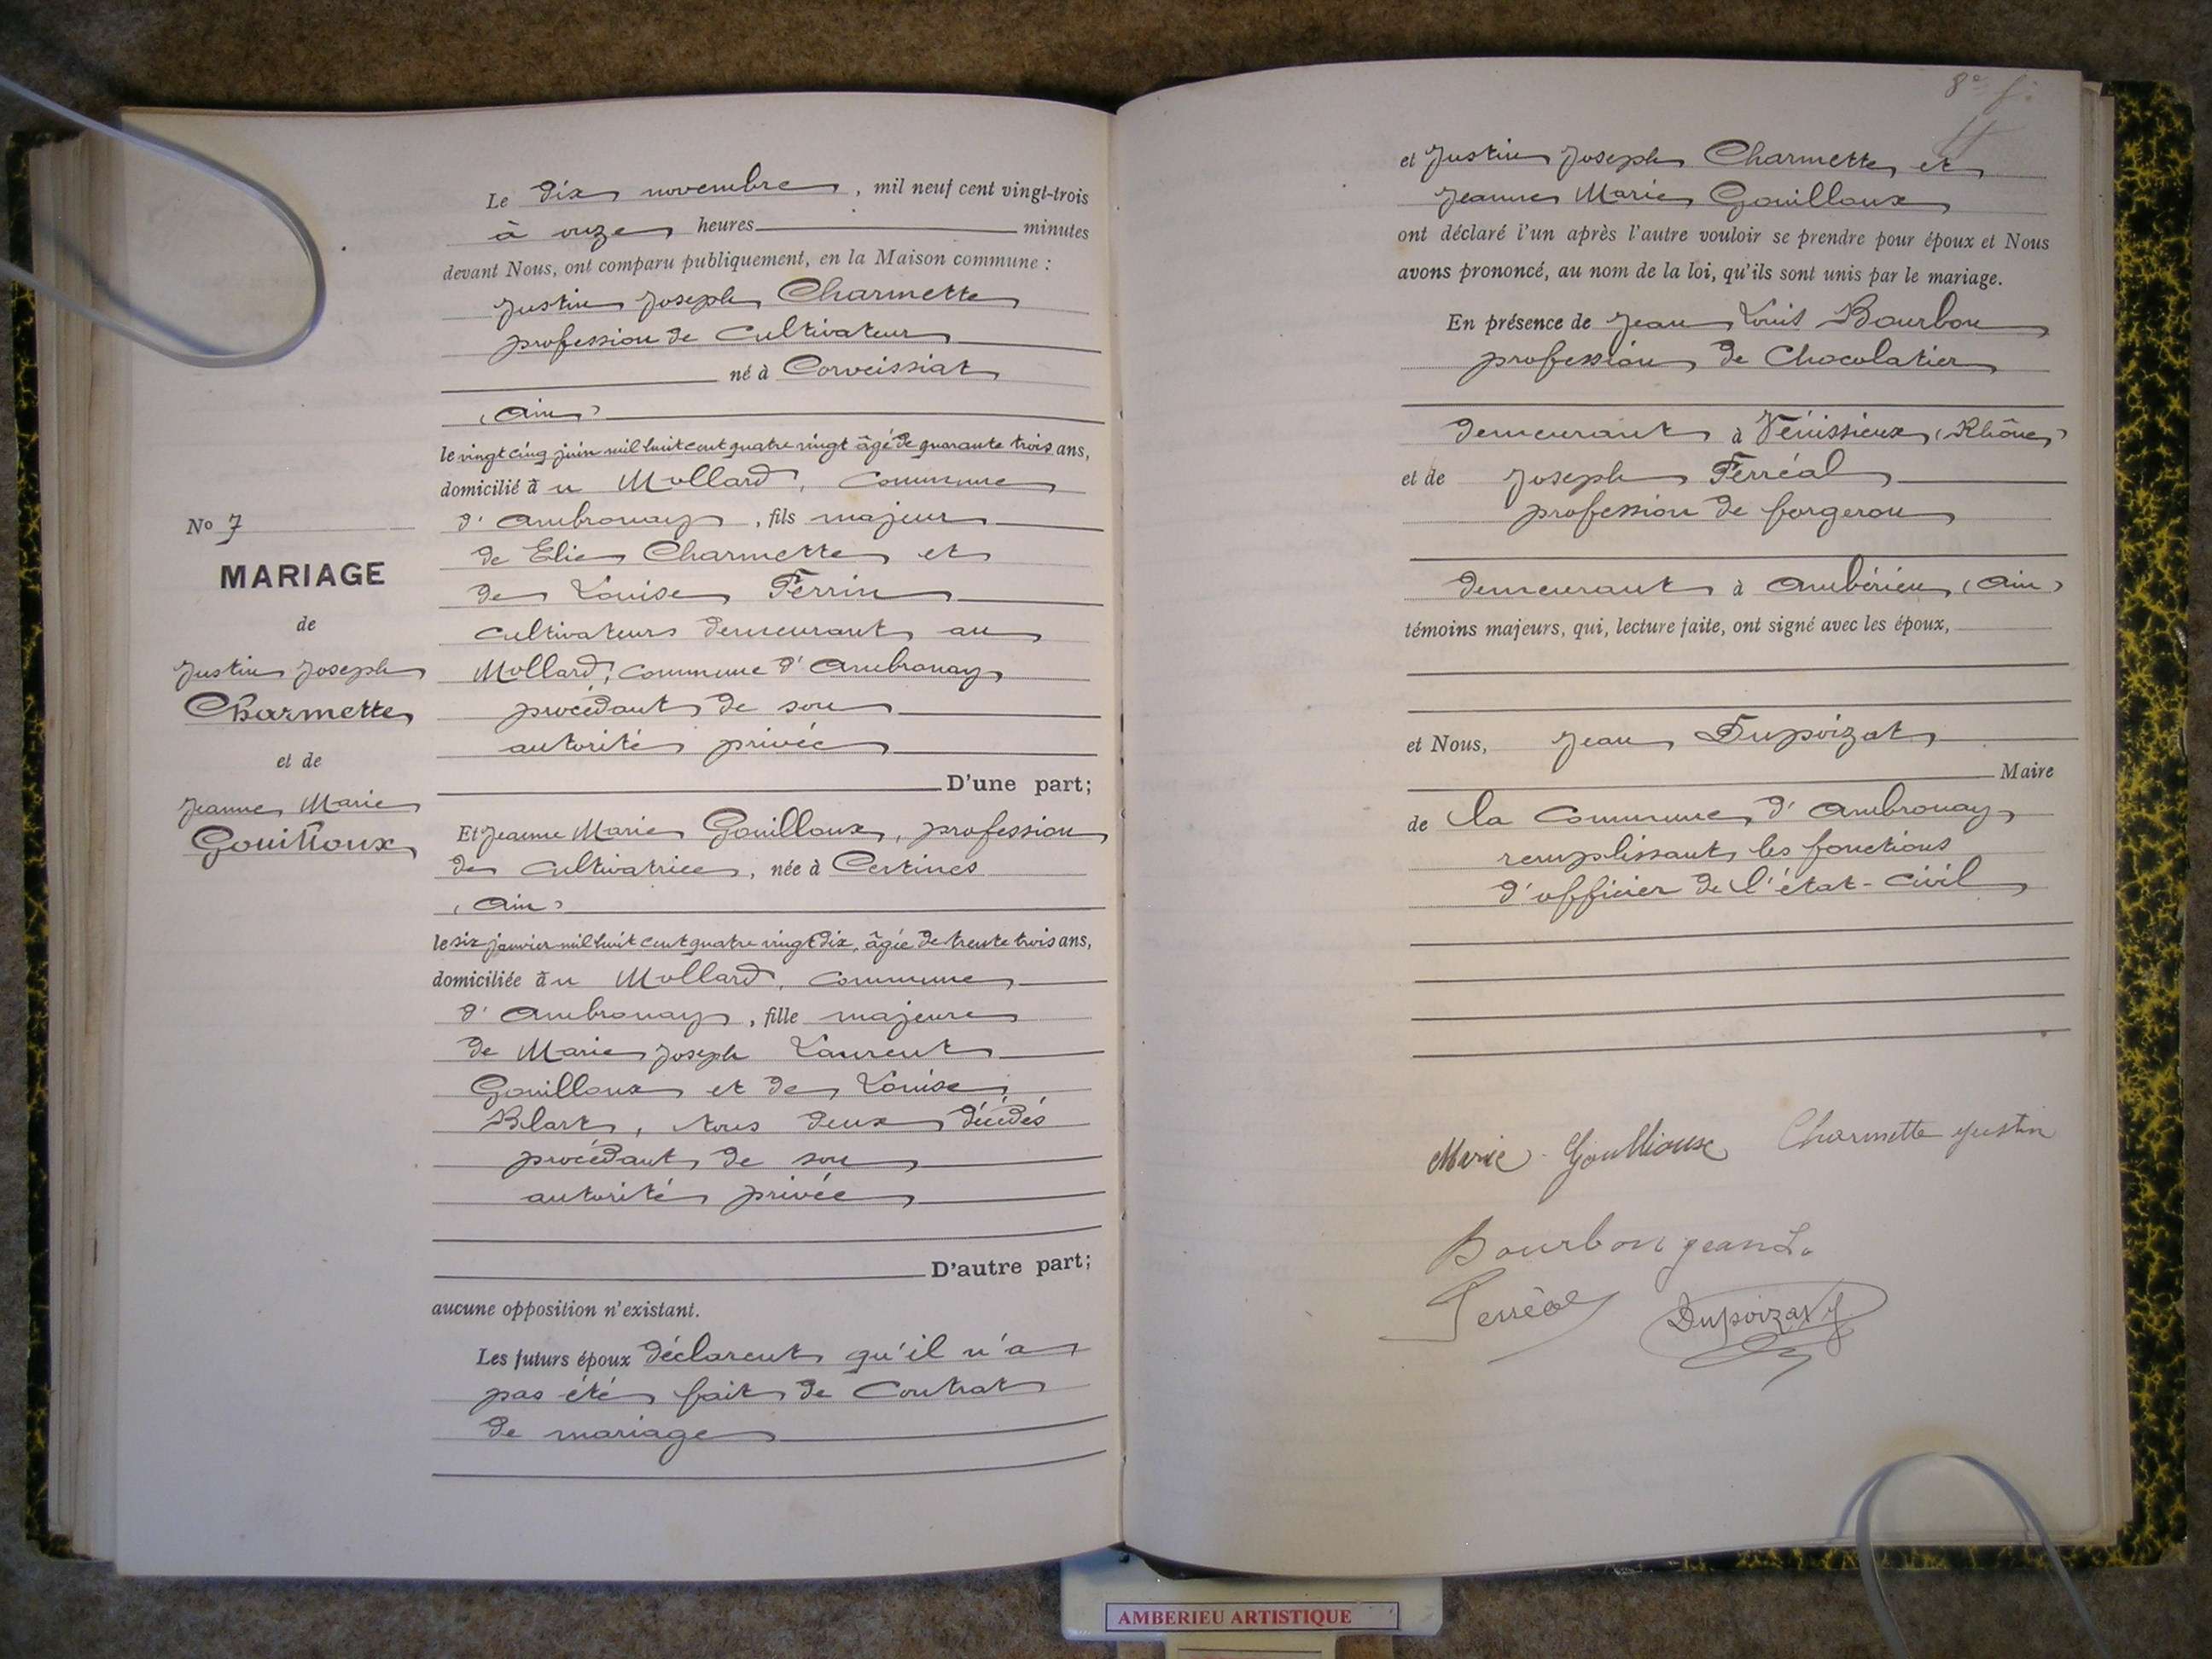 Le dix novembre, mil neuf cent vingt-trois
à onze heures minutes
devant Nous, ont comparu publiquement, en la Maison commune :
Justin Joseph Charmette
profession de Cultivateur
né à Corveissiat
(Ain)
le vingt cinq juin mil huit cent quatre vingt âgé de quarante trois ans,
domicilié au Mollard, Commune
d'Ambronay, fils majeur
de Elie Charmette et
de Louise Perrin
cultivateurs demeurant au
Mollard, Commune d'Ambronay
procédant de son
autorité privée
D'une part;
No 7
MARIAGE
de
Justin Joseph
Charmette
et de
Jeanne Marie
Gouilloux
Et Jeanne Marie Gouilloux, profession
de Cultivatrice, née à Certines
(Ain)
le six janvier mil huit cent quatre vingt dix, âgée de trente trois ans,
domiciliée au Mollard, Commune
d'Ambronay, fille majeure
de Marie Joseph Laurent
Gouilloux et de Louise
Blart, tous deux décédés
procédant de son
autorité privée
D'autre part;
aucune opposition n'existant.
Les futurs époux déclarent qu'il n'a
pas été fait de Contrat
de mariage
8e f.
et Justin Joseph Charmette et
Jeanne Marie Gouilloux
ont déclaré l'un après l'autre vouloir se prendre pour époux et Nous
avons prononcé, au nom de la loi, qu'ils sont unis par le mariage.
En présence de Jean Louis Bourbon
profession de Chocolatier
demeurant à Vénissieux (Rhône)
et de Joseph Ferréal
profession de forgeron
demeurant à Ambérieu (Ain)
témoins majeurs, qui, lecture faite, ont signé avec les époux,
et Nous, Jean Dupoizat
Maire
de la Commune d'Ambronay
remplissant les fonctions
d'officier de l'état-civil
Marie Goullioux Charmette justin
Bourbon jean L.
Ferréal Dupoizat J
AMBERIEU ARTISTIQUE